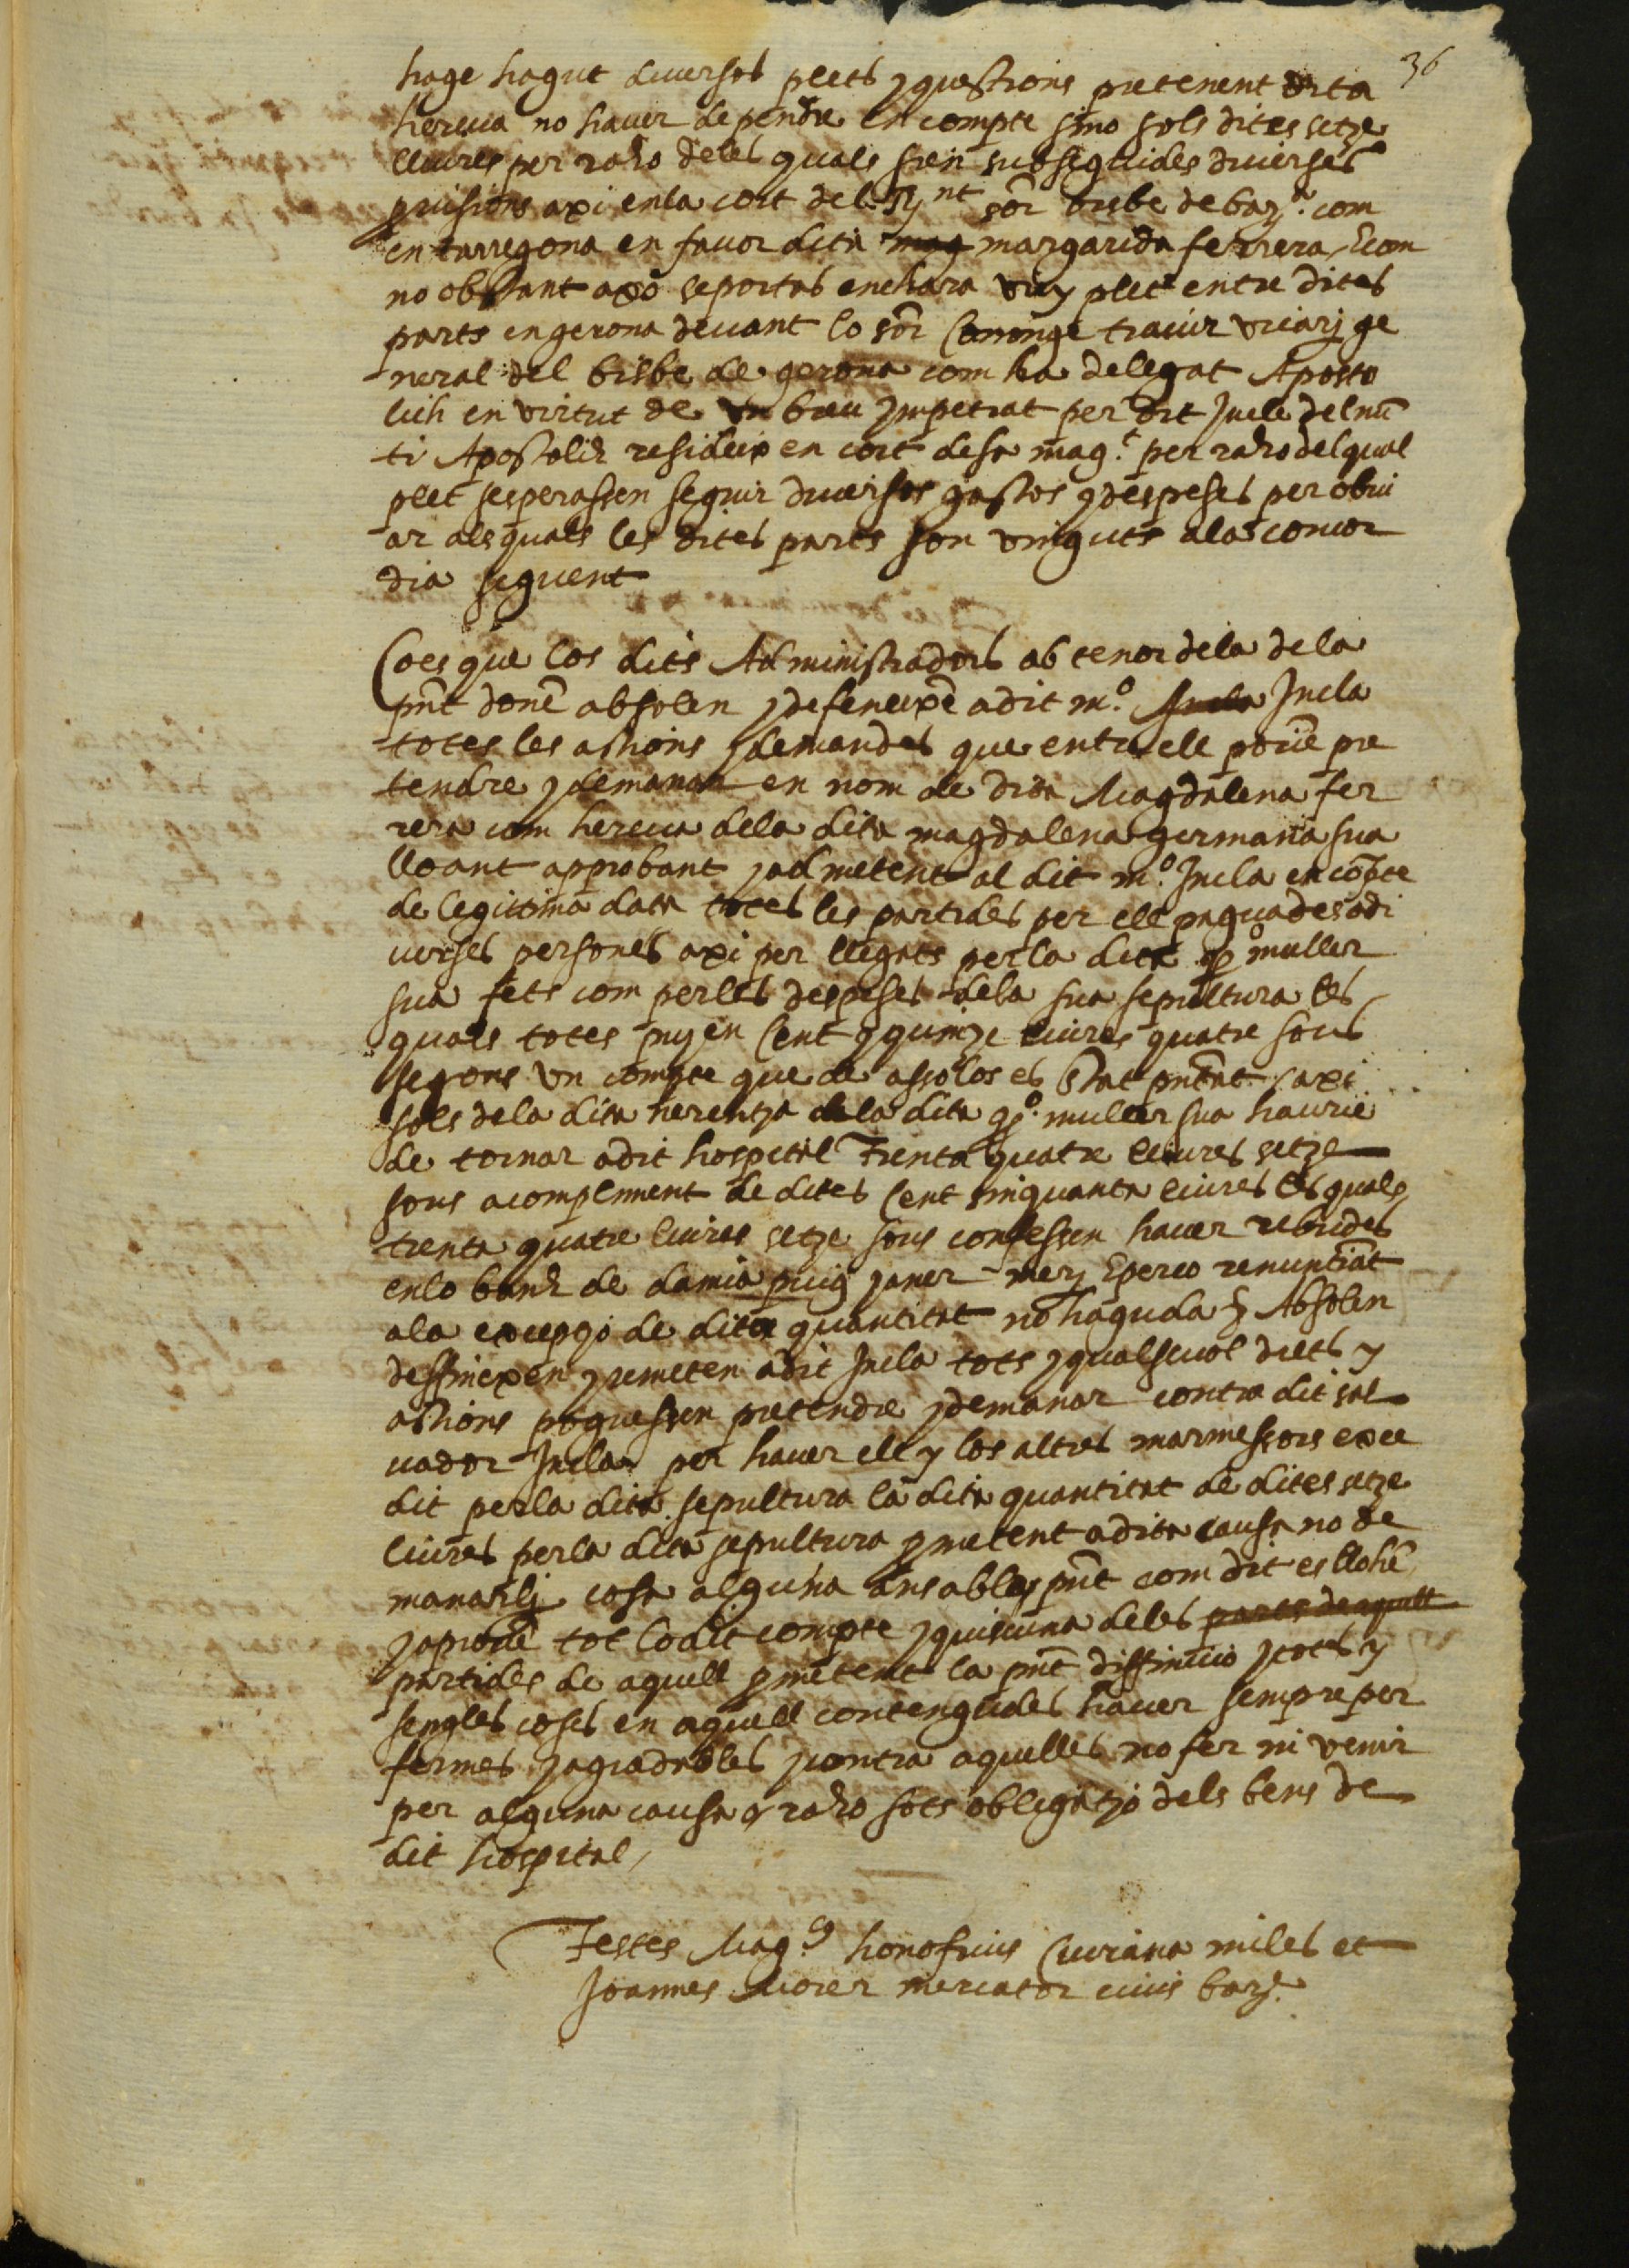 36
hage hagut diversos plets y questions pretenent dita
hereva no haver de pendre en compte sino sols dites setze
lliures per raho deles quals sien subseguides diverses
provisions axi en la cort del R.nt sor bisbe de bar.a com
en tarregona en favor dita mag margarida ferrera Ecom
no obstant axo se portas enchara vuy plet entre dites
parts en gerona devant lo sor Canonge vicari ge
neral del bisbe de gerona com ha delegat Aposto
lich en virtut de un breu impetrat per dit Jucla del nu
ti Apostolich resideix en cort de sa mag.t per raho del qual
plet sesperassen seguir diversos gastos y despeses per obvi
ar als quals les dites parts son vinguts a la concor
dia seguent
Coes que los dits Administradors ab tenor dela dela
pnt donē absolen y defeneixē a dit m.o Jucla Jucla
totes les actions y demandes que entre ell poriē pre
tendre y demanar en nom de dita Magdalena fer
rera com hereva dela dita magdalena germana sua
lloant approbant y admetent al dit m.o Jucla en cōpte
de legittima data totes les partides per ell paguades a di
verses persones axi per llegats per la dita q.o muller
sua fets com per les despeses dela sua sepultura les
quals totes pugen Cent y quinze liures quatre sous
segons un compte que de asso los es stat pntat y axi
sols dela dita herentza dela dita q.o muller sua haurie
de tornar a dit hospital Trenta quatre lliures setze
sous a compliment de dites Cent sinquanta liures les quals
trenta quatre liures setze sous confessen haver rebudes
en lo banch de damia puig janer Eperço renuntiāt
ala excepçio de dita quantitat no haguda Absolen
deffinexen y remeten a dit Jucla tots y qualsevol drets y
actions poguessen pretendre y demanar contra dit sal
vador Jucla per haver ell y los altres marmessors exce
dit per la dita sepultura la dita quantitat de dites setze
liures per la dita sepultura prometent a dita causa no de
manarli cosa alguna ans ab la pnt com dit es llohē
y aprovē tot lo dit compte y quiscuna deles parts de aquell
partides de aquell prometent la pnt diffinicio y totes y
sengles coses en aquell contengudes haver sempre per
fermes y agradables y contra aquelles no fer ni venir
per alguna causa o raho sots obligatzio dels bens de
dit hospital
Testes Mag.cs honofrius Curiana miles et
Joannes Morer mercator civis bar.e